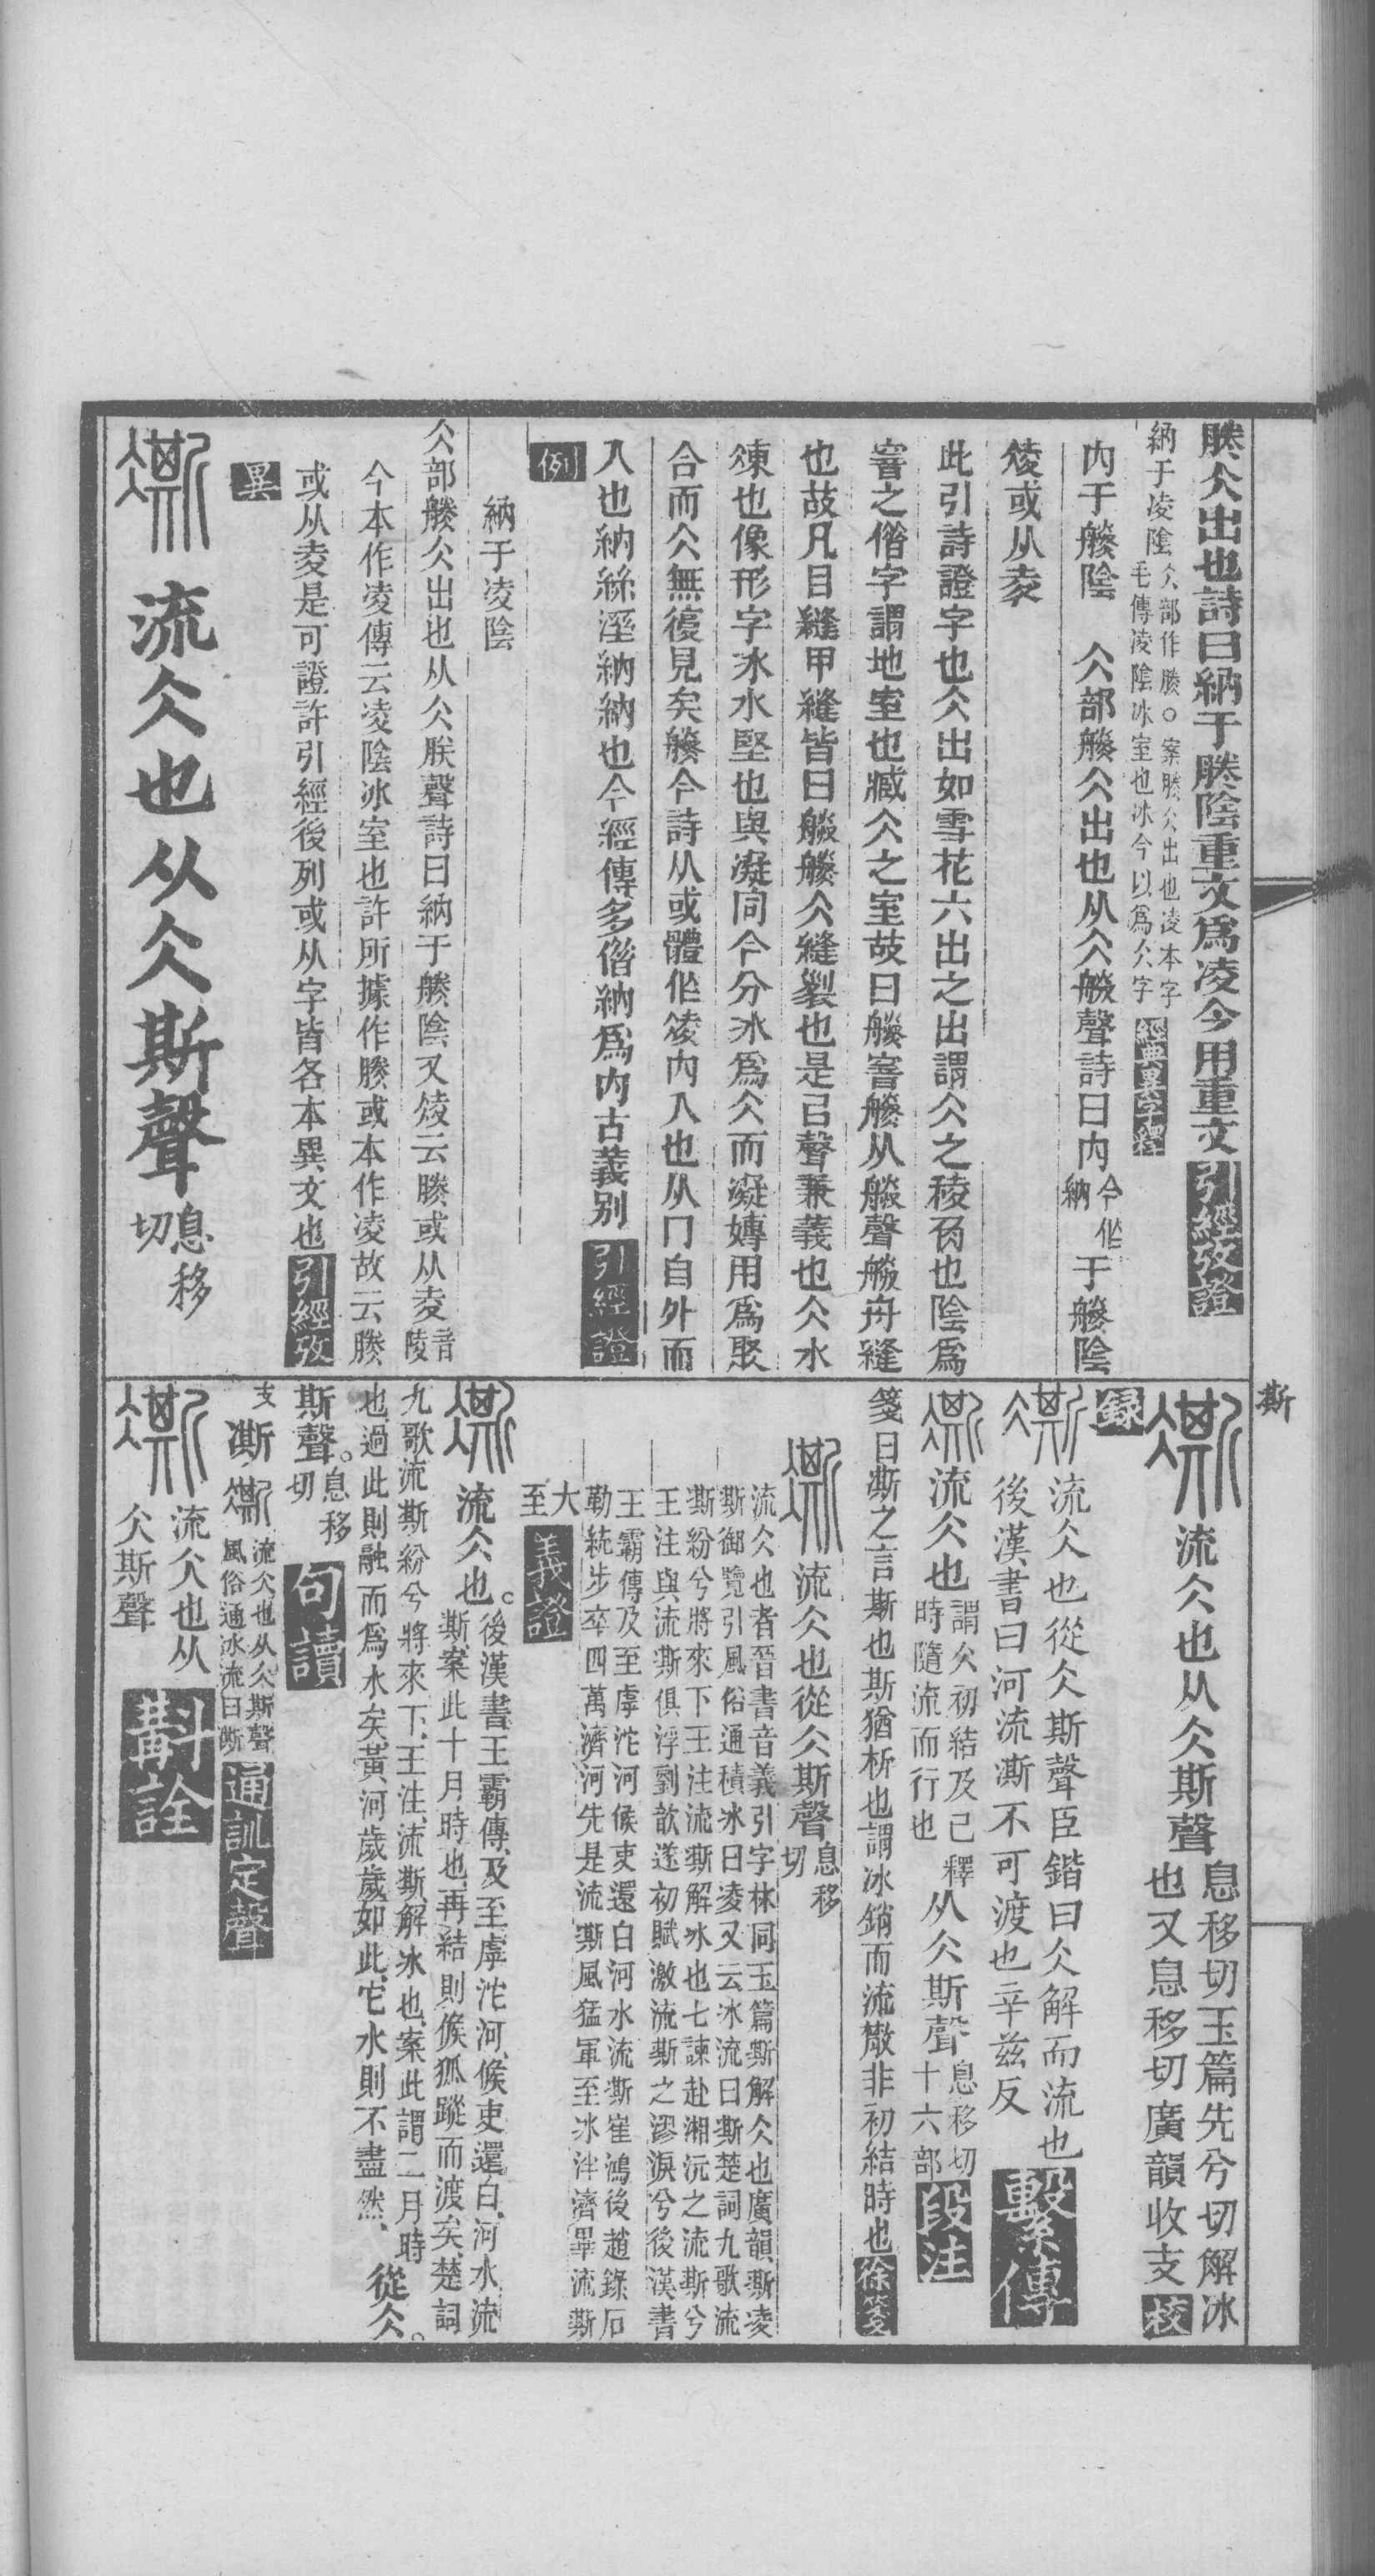 㓹仌出也詩曰納于㓹陰重文爲凌今用重文引經攷證
納于凌陰仌部作㓹○案㓹仌出也凌本字
毛傳凌陰冰室也冰今以爲仌字經典異字釋
內于䑞陰　仌部䑞仌出也从仌䑞聲詩曰內今作納于䑞陰
㥄或从夌
此引詩證字也仌出如雪花六出之出謂仌之稜𠕎也陰爲
窨之偕字謂地室也臧仌之室故曰䑞窨䑞从聲舟縫
也故凡目縫甲縫皆曰仌縫裂也是㠯聲兼義也仌水
凍也像形字冰水堅也與凝同今分冰爲仌而凝專用爲聚
合而仌無復見矣今詩从或體作凌內入也从冂自外而
入也納絲溼納納也今經傳多偕納爲內古義别引經證
例
納于凌陰
仌部㓹仌出也从仌朕聲詩曰納于㓹陰又凌云㓹或从夌音陵
今本作凌傳云凌陰冰室也許所據作㓹或本作凌故云㓹
或从夌是可證許引經後列或从字皆各本異文也引經攷
異
流仌也从仌斯聲息移切
澌
流仌也从仌斯聲息移切玉篇先兮切解冰
也又息移切廣韻收支校
錄
流仌也從仌斯聲臣鍇曰仌解而流也
後漢書曰河流澌不可渡也辛茲反繫傳
流仌也謂仌初結及已釋時隨流而行也从仌斯聲息移切十六部段注
箋曰澌之言斯也斯猶析也謂冰銷而流㪚非初結時也徐箋
流仌也從仌斯聲息移切
流仌也者晉書音義引字林同玉篇澌解仌也廣韻澌凌
澌御覽引風俗通積冰曰凌又云冰流曰澌楚詞九歌流
澌紛兮將來下王注流澌解冰也七諫赴湘沅之流澌兮
王注與流澌俱浮劉歆遂初賦激流澌之漻淚兮後漢書
王霸傳及至虖沱河候吏還白河水流澌崔鴻後趙錄石
勒統步卒四萬濟河先是流澌風猛軍至冰泮濟畢流澌
大至義證
流仌也。後漢書王霸傳、及至虖沱河、候吏還白、河水流
澌、案此十月時也、再結則候狐蹤而渡矣、楚詞
九歌流澌紛兮將來下、王注、流澌、解冰也、案此謂二月時
也、過此則融而爲水矣、黃河歲歲如此、它水則不盡然、從仌。
斯聲。息移切句讀
支
澌流仌也从仌斯聲
風俗通冰流曰澌通訓定聲
流仌也从
仌斯聲斠詮